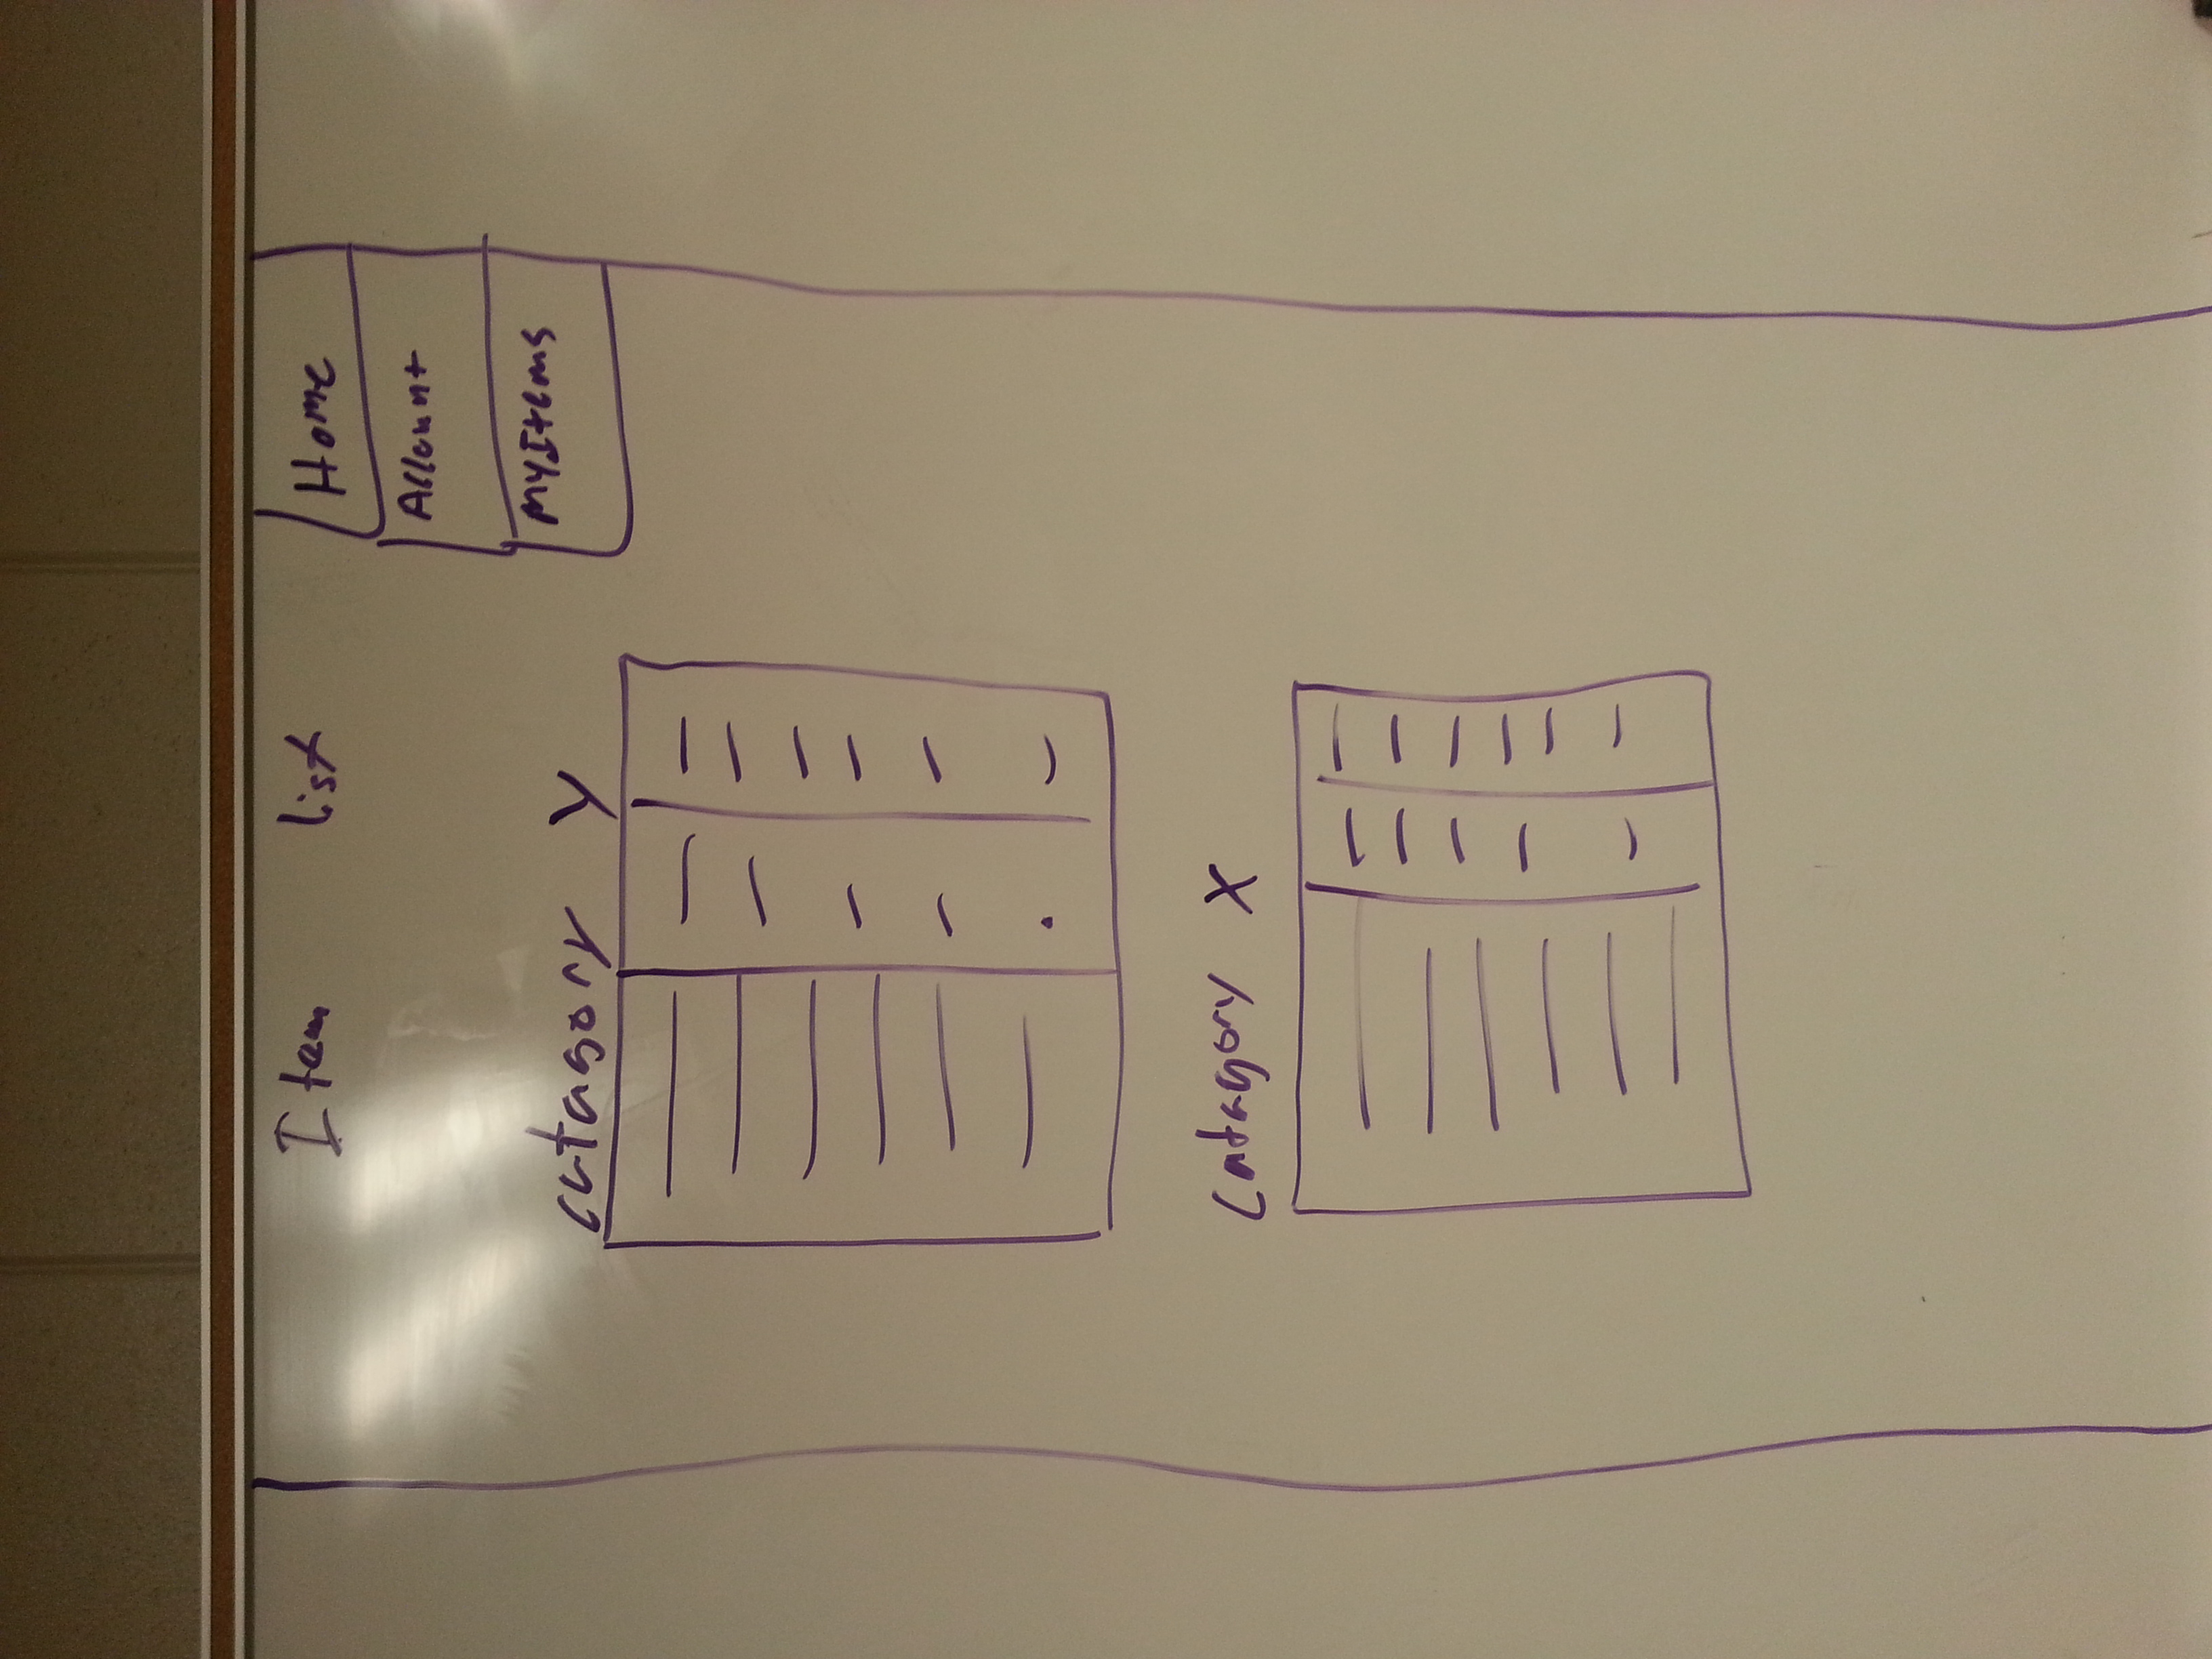 Item list
Home
Account
MyItems
catagory Y
catagory X